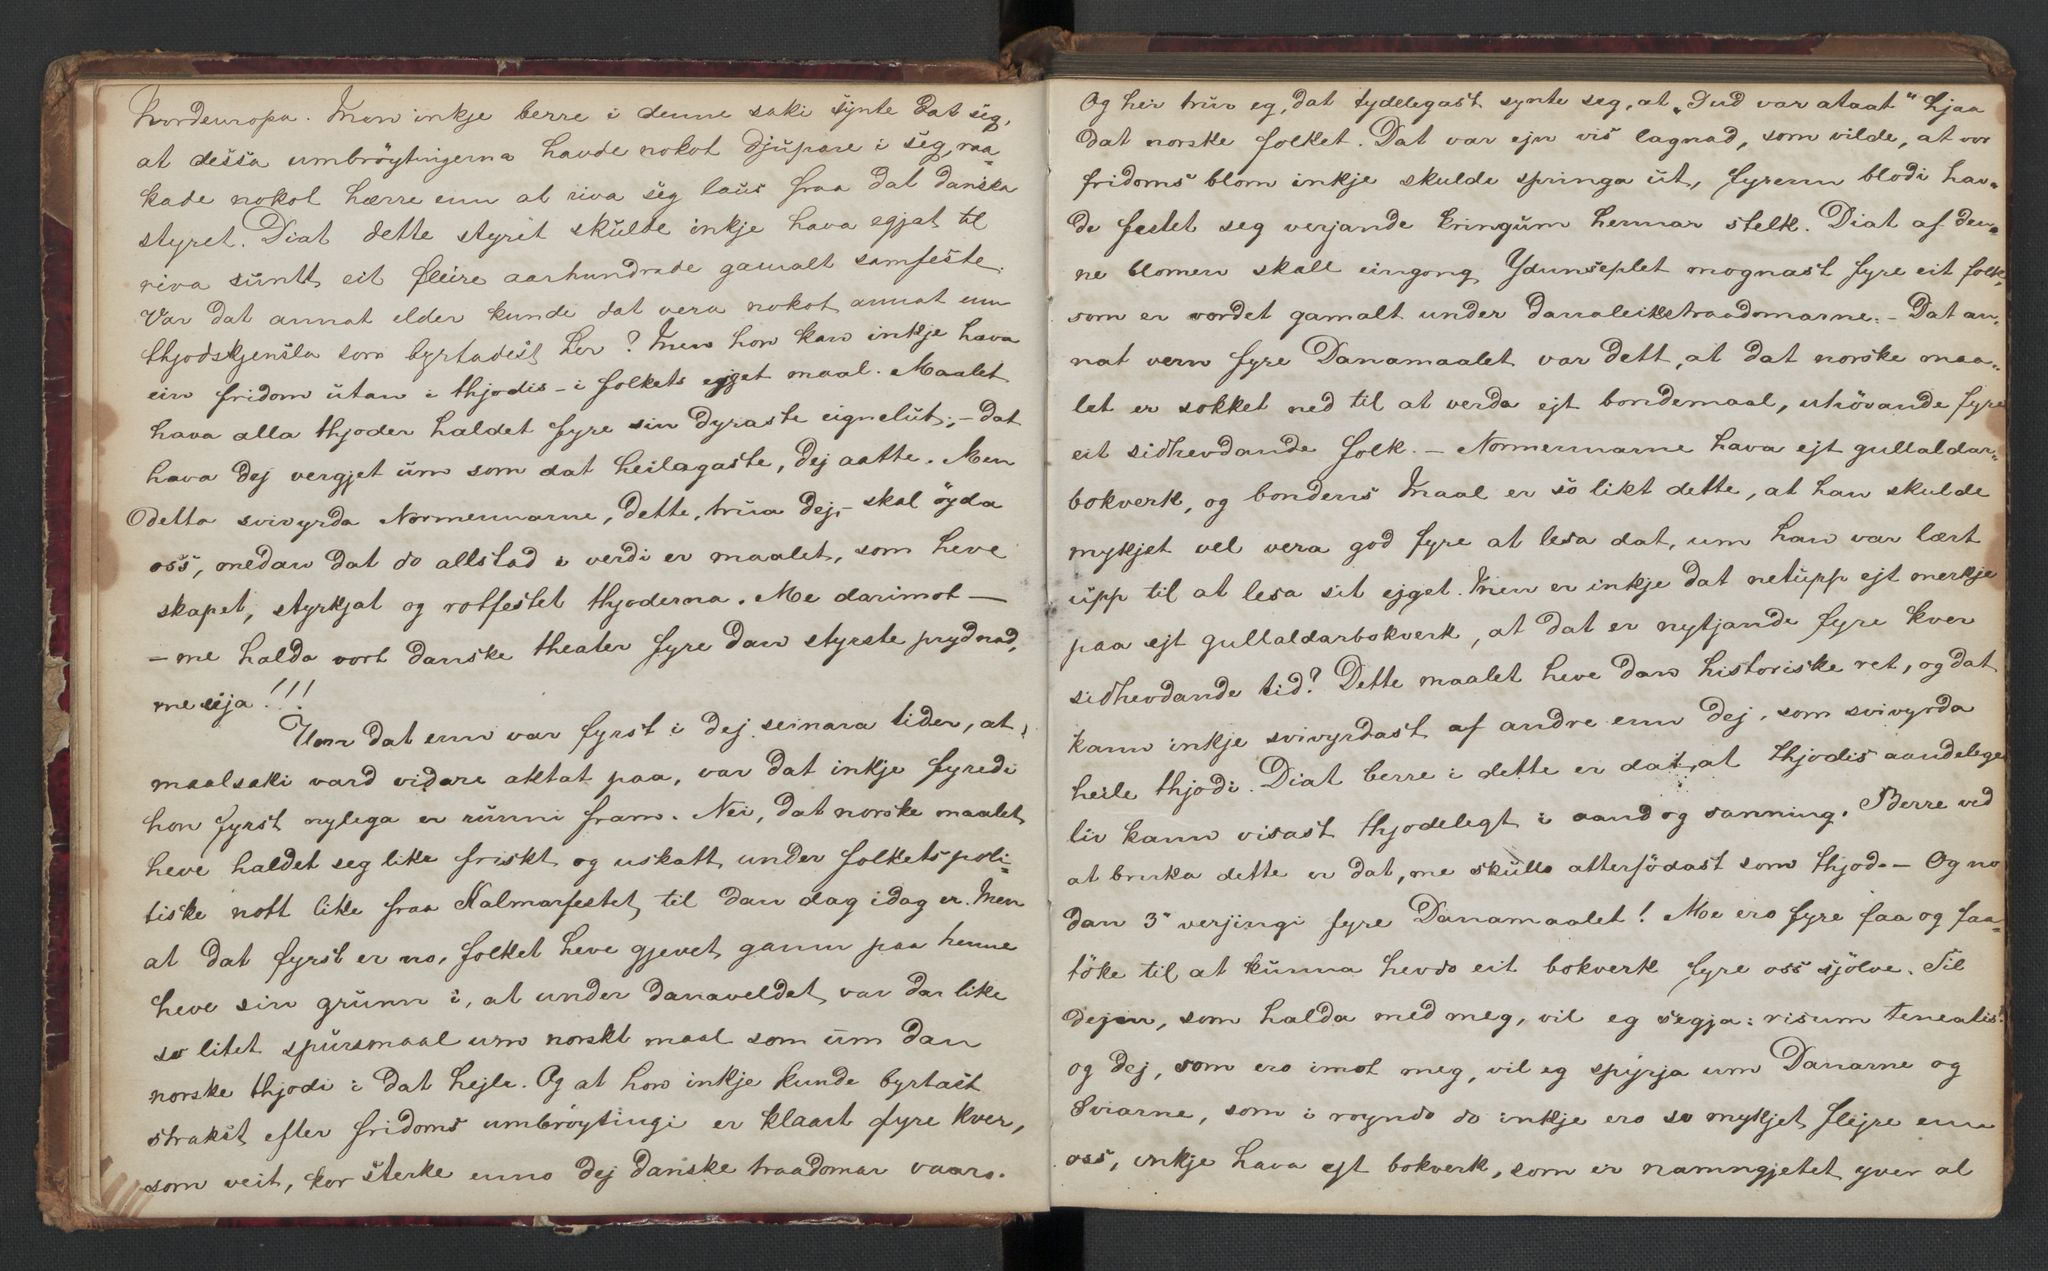 Nordeuropa. Men inkje berre i denne saki synte dat seg,
at dessa umbröytingerna havde nokot djupare i seg, raa-
kade nokot hærre enn at riva seg laus fraa dat danska
styret. Diat dette styrit skulde inkje hava egjat til
riva suntt eit fleire aarhundrade gamalt samfeste.
Var dat annat elder kunde dat vera nokot annat enn
thjodskjensla som byrtadest her? Men hon kan inkje hava
ein fridom utan i thjodis - i folkets ejget maal. Maalet
hava alla thjoder haldet fyre sin dyraste eignelut; - dat
hava dej vergjet um som dat heilagaste, dej aatte. Men
detta svivyrda Normennarne, dette, trua dej, - skal öyda
oss, medan dat do allstad i verdi er maalet, som heve
skapet, styrkjat og rotfestet thjoderna. Me darimot -
- me halda vort danske theater fyre dan styrste prydnad,
me eija!!!
Um dat enn var fyrst i dej seinara tider, at
maalsaki vard vidare aktat paa, var dat inkje fyredi
hon fyrst nylega er runni fram. Nei, dat norske maalet
heve haldet seg like friskt og uskatt under folkets poli-
tiske nott like fraa Kalmarfestet til dan dag idag er. Men
at dat fyrst er no, folket heve gjevet gaum paa henne
heve sin grunn i, at under danaveldet var dar like
so litet spursmaal um norskt maal som um dan
norske thjodi i dat hejle. Og at hon inkje kunde byrtast
strakst efter fridoms umbröytingi er klaart fyre kver,
som veit, kor sterke enno dej danske traadomar vaaro.
Og her trur eg, dat tydelegast synte seg, at "Gud var ataat" hjaa
dat norske folket. Dat var ejn vis lagnad, som vilde, at vor
fridoms blom inkje skulde springa ut, fyrenn blodi hav-
de festet seg verjande kringum hennar stelk. Diat af den-
ne blomen skall eingong Ydunseplet mognast fyre eit folk,
som er vordet gamalt under danaleikstraadomarne. - Dat an-
nat vern fyre Danamaalet var dett, at dat norske maa-
let er sokket ned til at verda ejt bondemaal, uhövande fyre
eit sidhevdande folk. - Normennarne hava ejt gullaldar-
bokverk, og bondens maal er so likt dette, at han skulde
mykjet vel vera god fyre at lesa dat, um han var lært
upp til at lesa sit ejget. Men er inkje dat netupp ejt merkje
paa ejt gullaldarbokverk, at dat er nytjande fyre kver
sidhevdande tid? Dette maalet heve dan historiske ret, og dat
kann inkje svivyrdast af andre enn dej, som svivyrda
heile thjodi. Diat berre i dette er dat, at thjodis aandelege
liv kann visast thjodelegt i aand og sanning. Berre ved
at bruka dette er dat, me skulle atterfödast som thjod. - Og no
dan 3' verjingi fyre Danamaalet! Me ero fyre faa og faa-
töke til at kunna hevda eit bokverk fyre oss sjölve. Til
dejm, som halda med meg, vil eg segja: risum teneatis!
og dej, som ero imot meg, vil eg spyrja um Danarne og
Sviarne, som i roynda do inkje ero so mykjet flejre enn
oss, inkje hava ejt bokverk, som er namngjetet yver al